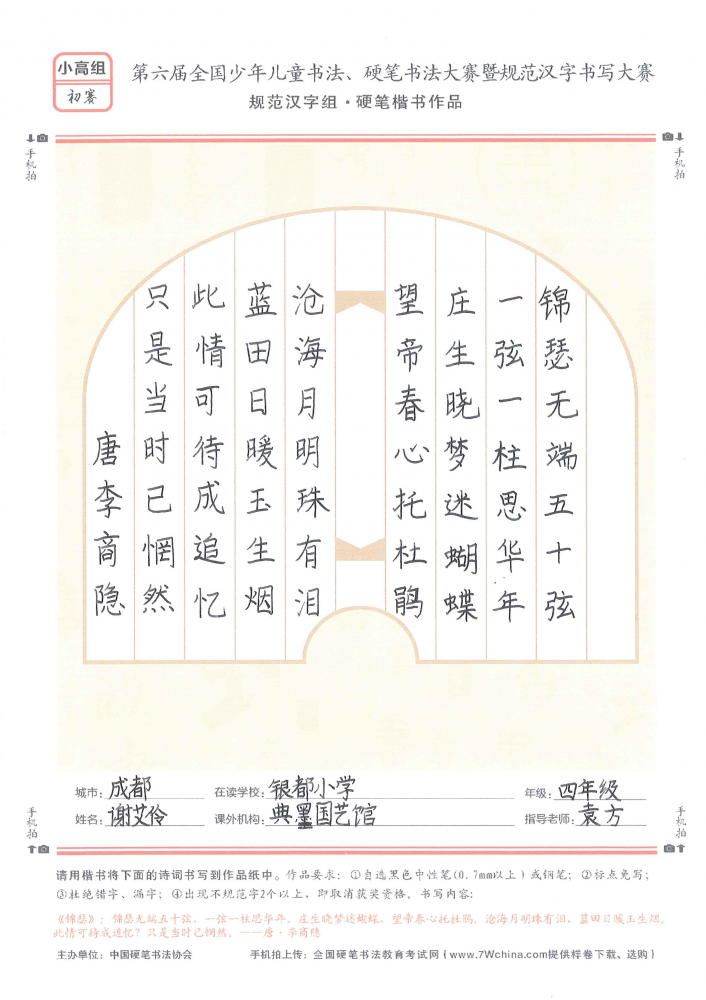 小高组
初赛
第六届全国少年儿童书法、硬笔书法大赛暨规范汉字书写大赛
规范汉字组·硬笔楷书作品
手机拍
手机拍
锦瑟无端五十弦
一弦一柱思华年
庄生晓梦迷蝴蝶
望帝春心托杜鹃
沧海月明珠有泪
蓝田日暖玉生烟
此情可待成追忆
只是当时已惘然
唐李商隐
城市：成都 在读学校：银都小学 年级：四年级
姓名：谢艾伶 课外机构：典墨国艺馆 指导老师：袁方
手机拍
手机拍
请用楷书将下面的诗词书写到作品纸中。作品要求：①自选黑色中性笔(0.7mm以上)或钢笔；②标点免写；
③杜绝错字、漏字；④出现不规范字2个以上，即取消获奖资格。书写内容：
《锦瑟》：锦瑟无端五十弦，一弦一柱思华年。庄生晓梦迷蝴蝶，望帝春心托杜鹃。沧海月明珠有泪，蓝田日暖玉生烟。
此情可待成追忆？只是当时已惘然。——唐·李商隐
主办单位：中国硬笔书法协会 手机拍上传：全国硬笔书法教育考试网{www.7Wchina.com提供样卷下载、选购}